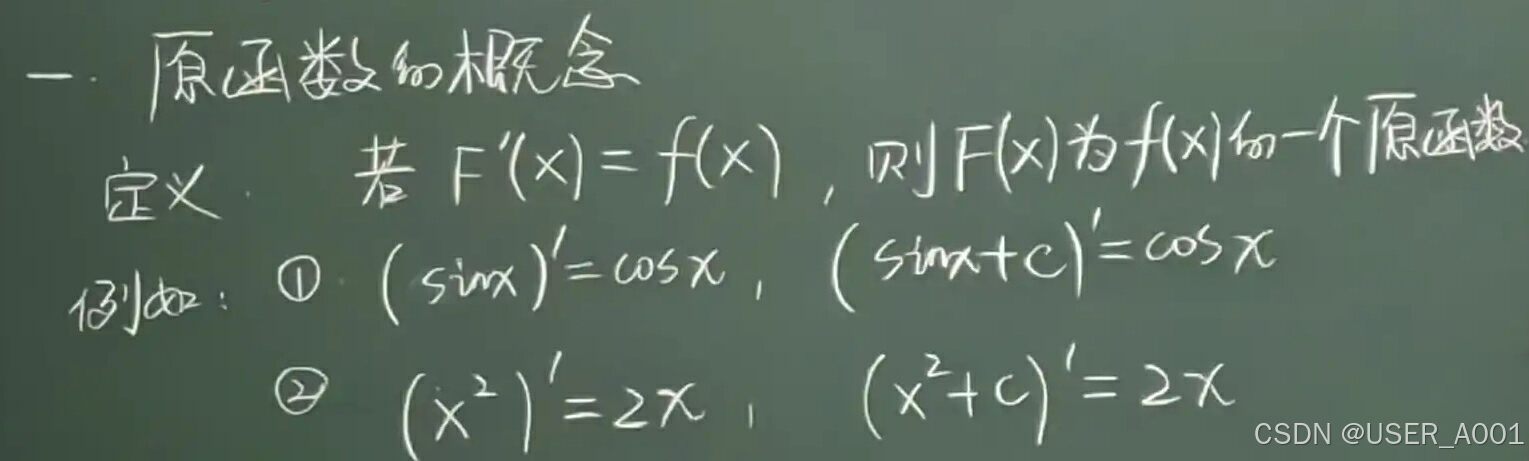 一. 原函数的概念
定义. 若 F'(x) = f(x), 则F(x)为f(x)的一个原函数
例如: ① (sinx)' = cosx, (sinx+c)' = cosx
② (x²)' = 2x, (x²+c)' = 2x
CSDN @USER_A001